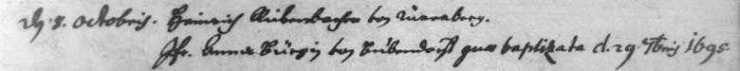 d. 8. octobris. Heinrich Aubersbacher von Nürenberg.
Fr. Anna Bürgin von Bubendorff quae baptizata d. 29. 7bris 1695.